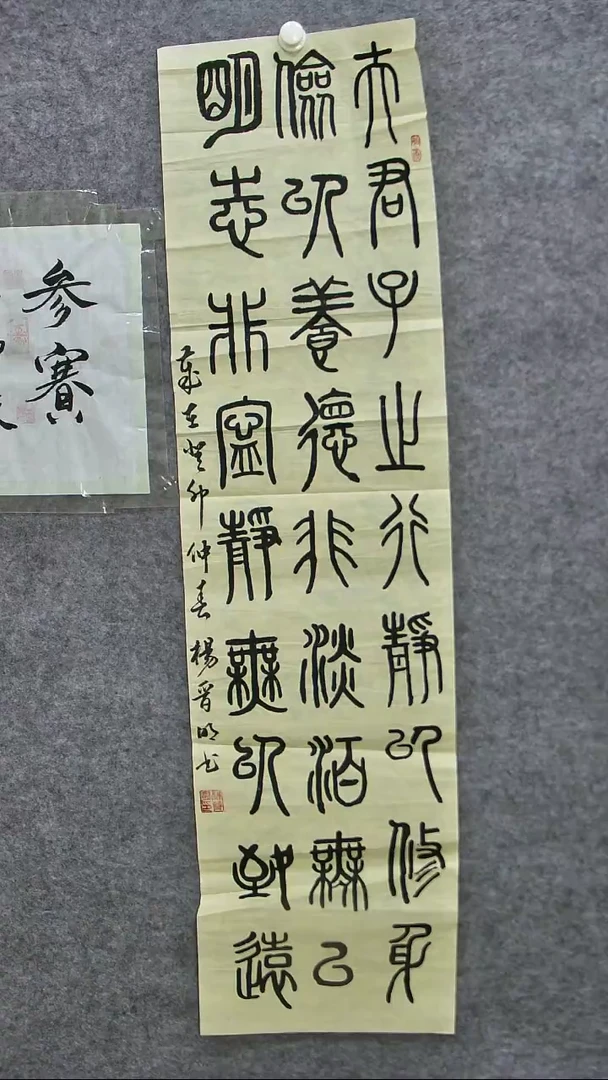 夫君子之行靜以修身
儉以養德非淡泊無以
明志非寧靜無以致遠
歲在癸卯仲春楊晉明书
参賽